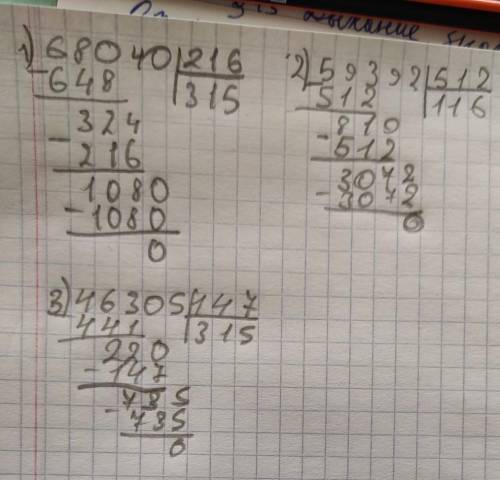 дыхание
1) 68040 | 216
- 648 | 315
324
- 216
1080
- 1080
0
2) 59392 | 512
512 | 116
- 819
512
3072
- 3072
0
3) 46305 | 147
441 | 315
220
- 147
735
- 735
0